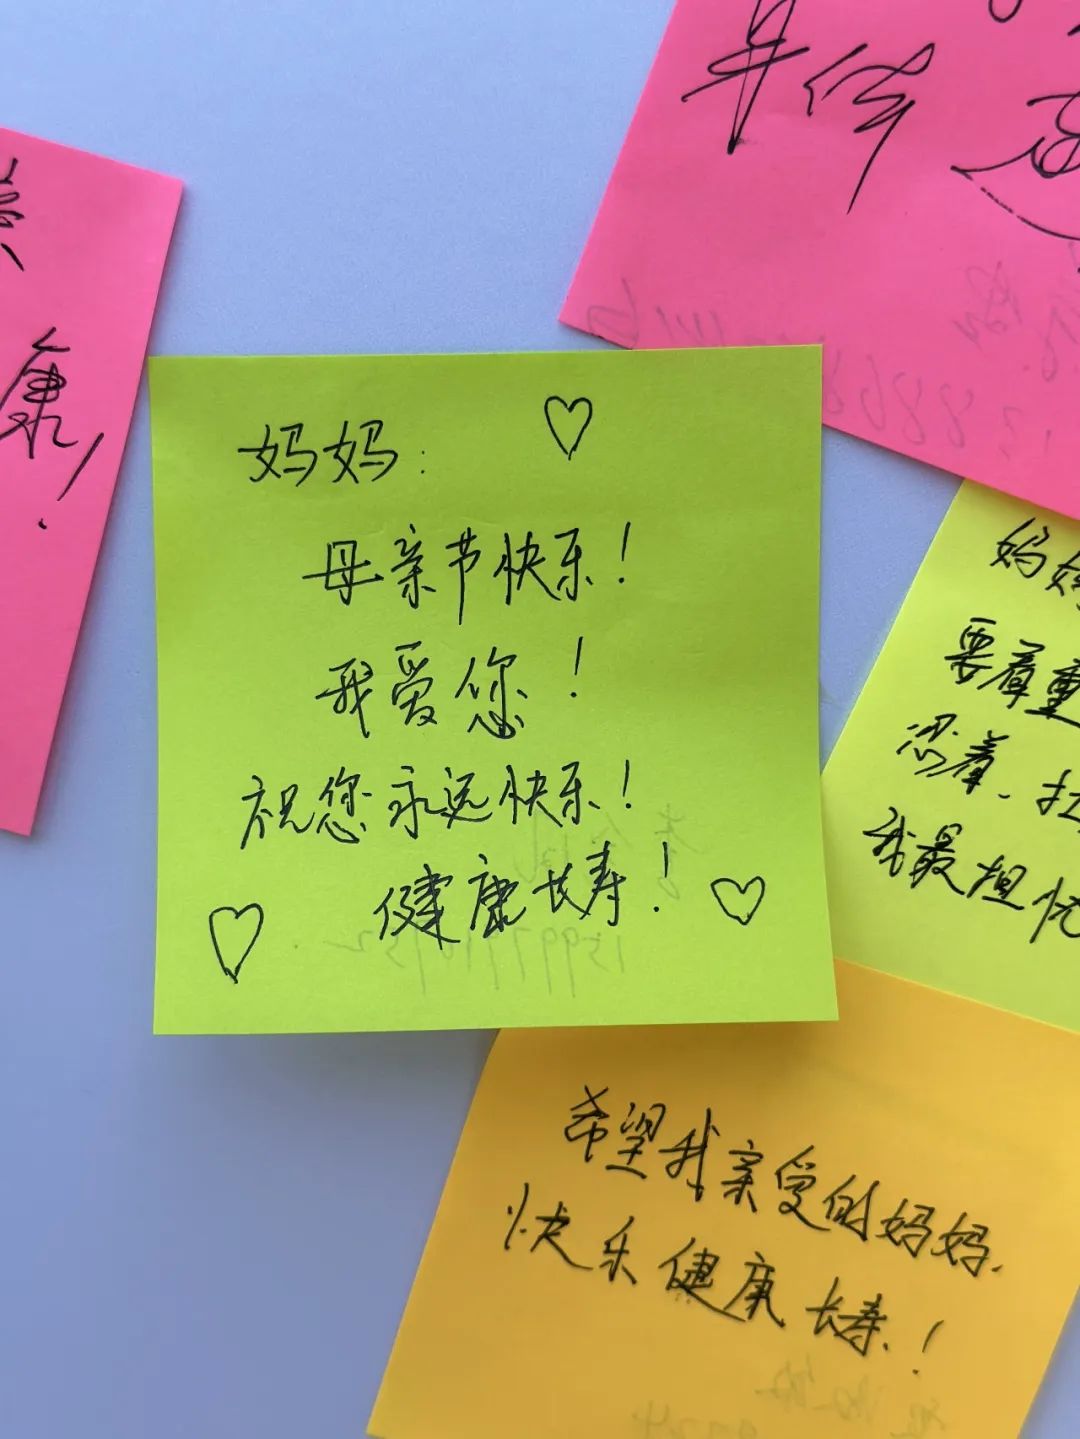 身体
康!
妈妈:
母亲节快乐!
我爱您!
祝您永远快乐!
健康长寿!
妈妈
要看重
忍着、
我最担忧
希望我亲爱的妈妈、
快乐健康长寿!